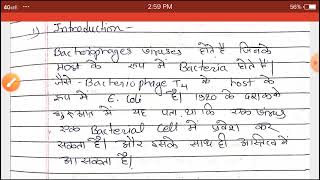 4G
2:59 PM
1) Introduction -
Bacteriophages viruses होते है जिनके
host के रूप में Bacteria होते हैं।
जैसे - Bacteriophage T4 के host के
रूप में E. Coli है। 1920 के दशक के
शुरुआत में यह पता था कि एक
एक Bacterial Cell में प्रवेश कर
सकता है। और इसके साथ ही अस्तित्व में
आ सकता है।